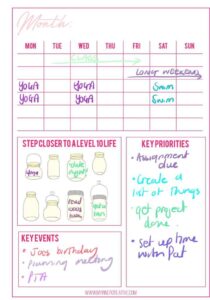 Month:
MON TUE WED THU FRI SAT SUN
CLASS
LONG WEEKEND
YOGA YOGA Swim
YOGA YOGA Swim
STEP CLOSER TO A LEVEL 10 LIFE
yoga
read
KEY PRIORITIES
• Assignment due
• Create a list of things
• get project done.
• Set up time with Pat
KEY EVENTS
• Joes birthday
• Planning meeting
• PTA